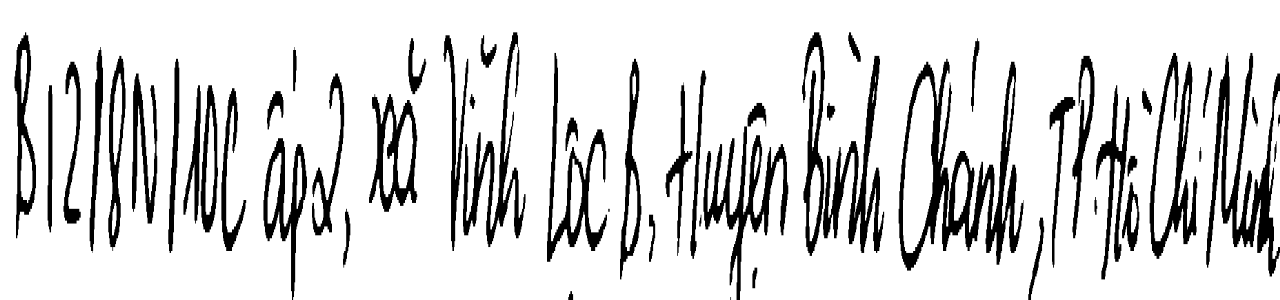 B12/8N/10C ấp 2, xã Vĩnh Lộc B, Huyện Bình Chánh, TP. Hồ Chí Minh